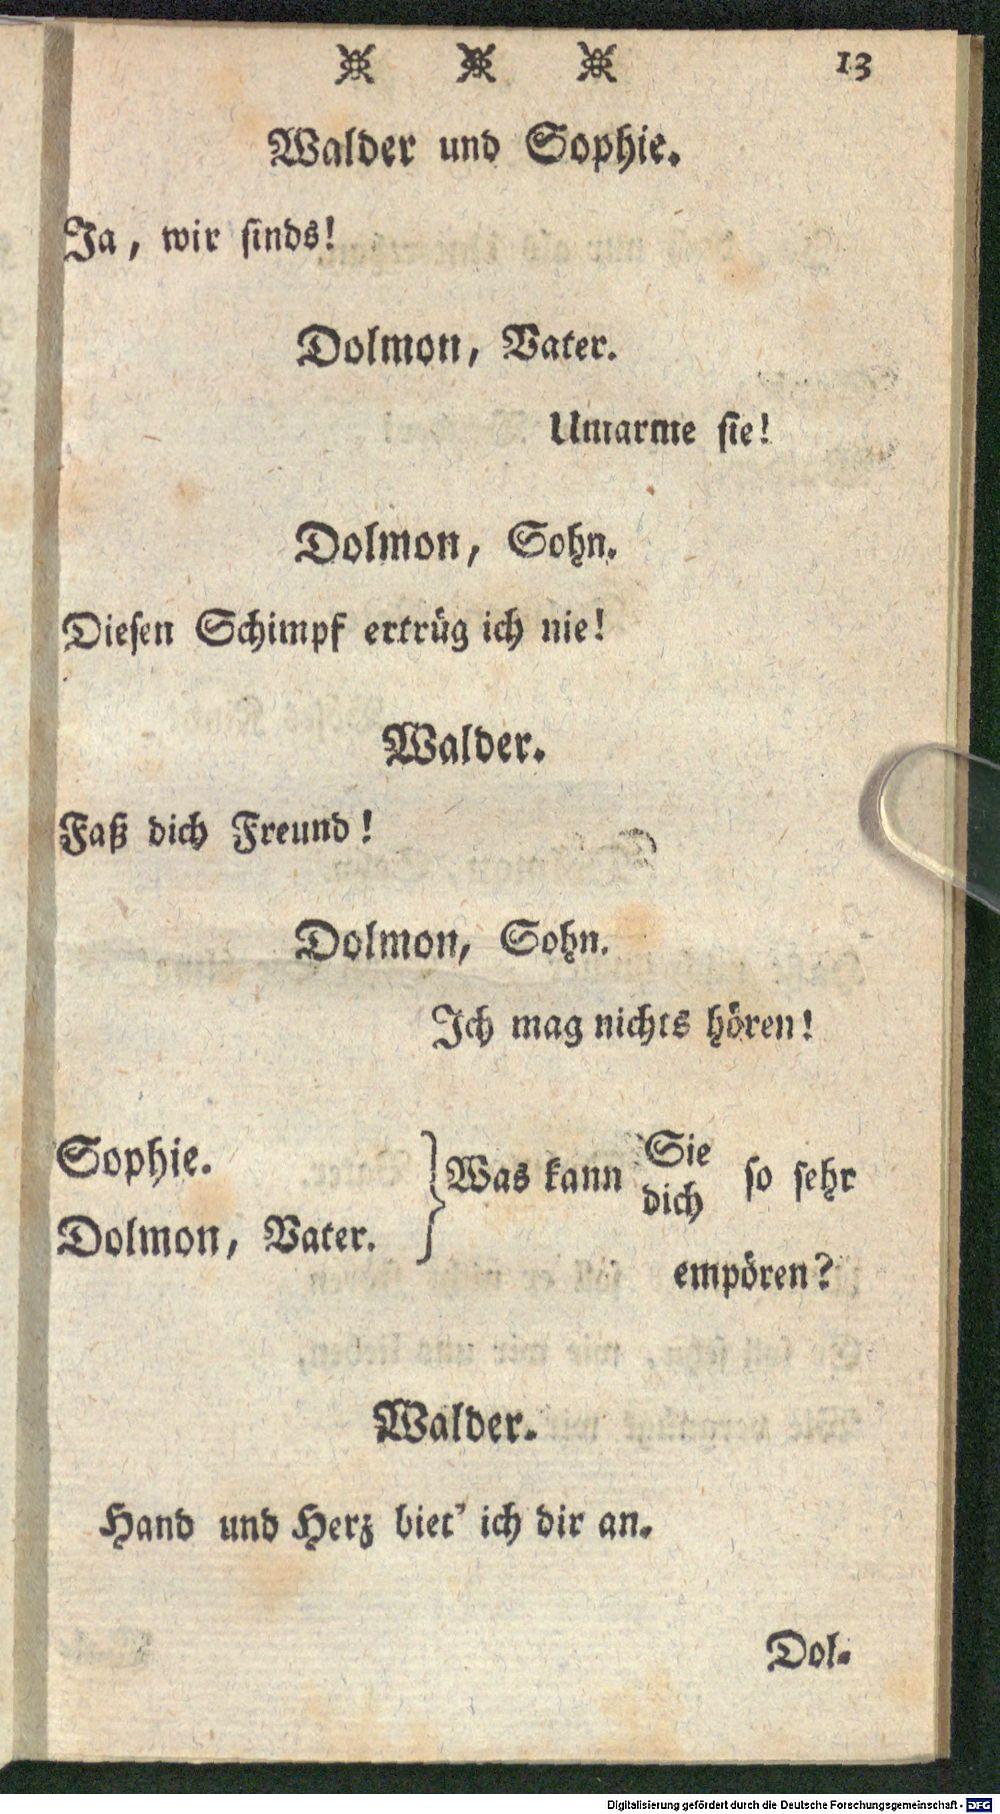 13
Walder und Sophie.
Ja, wir sinds!
Dolmon, Vater.
Umarme sie!
Dolmon, Sohn.
Diesen Schimpf ertrüg ich nie!
Walder.
Faß dich Freund!
Dolmon, Sohn.
Ich mag nichts hören!
Sophie.
Dolmon, Vater.
Was kann Sie dich so sehr
empören?
Walder.
Hand und Herz biet' ich dir an.
Dol-
Digitalisierung gefördert durch die Deutsche Forschungsgemeinschaft - DFG